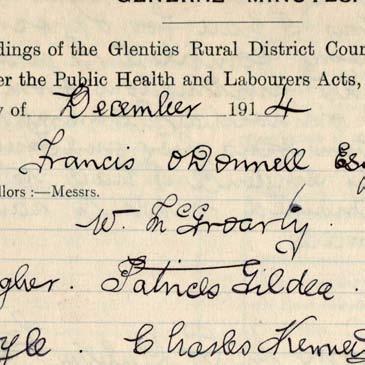 GENERAL MINUTES.
dings of the Glenties Rural District Cour
er the Public Health and Labourers Acts,
y of December 1914
Francis O'Donnell Esq
llors :—Messrs.
W. McGroarty.
gher. Patrick Gildea.
yle. Charles Kenne